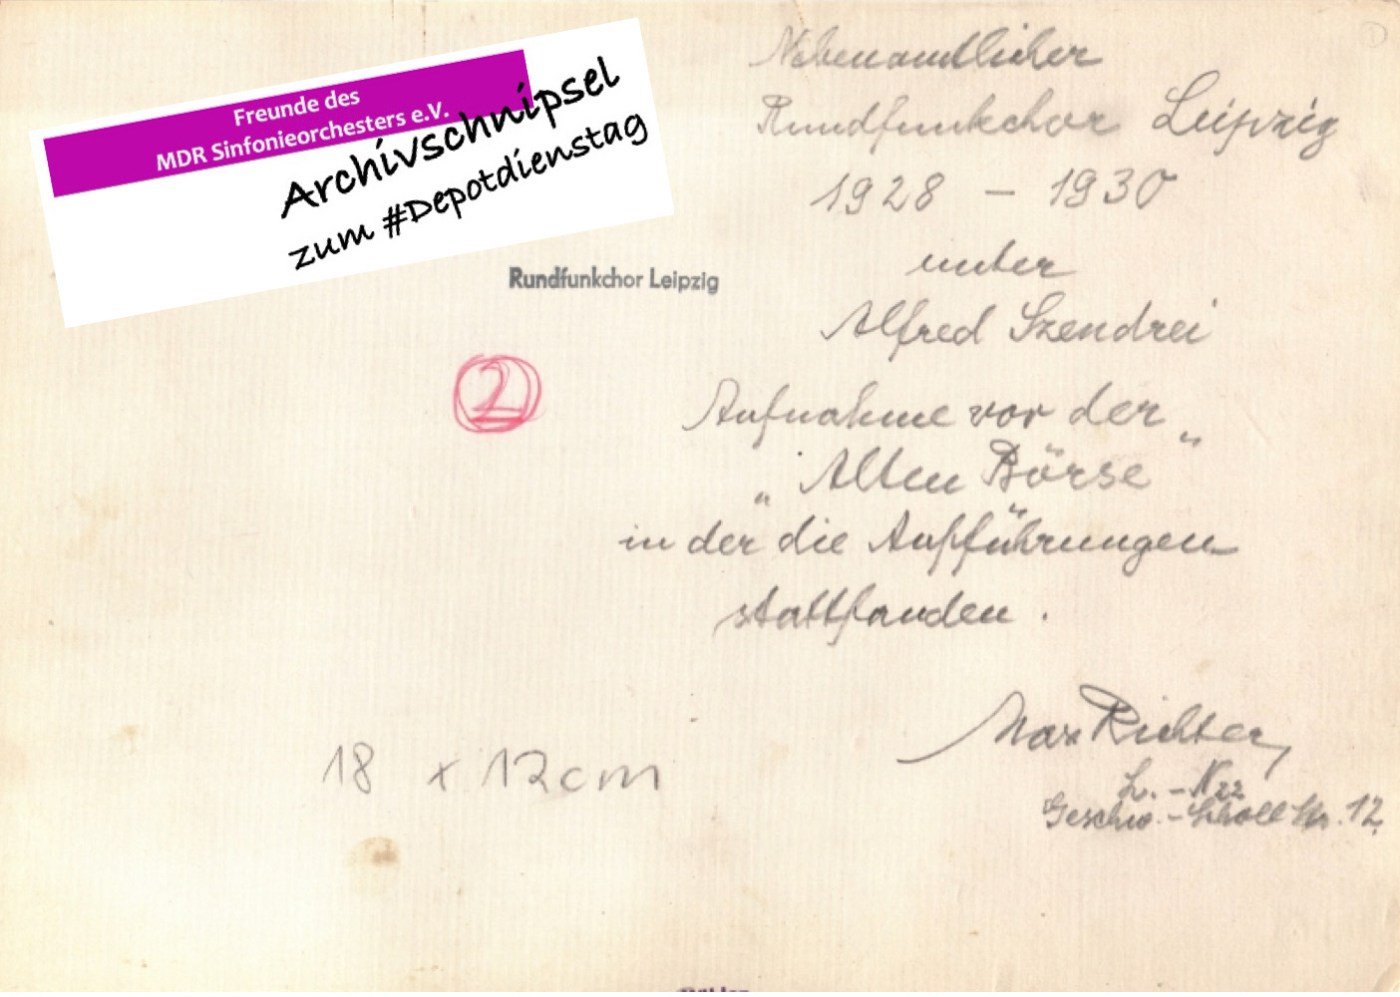 Freunde des
MDR Sinfonieorchesters e.V.
Archivschnipsel
zum #Depotdienstag
Rundfunkchor Leipzig
2
Nebenamtlicher
Rundfunkchor Leipzig
1928 – 1930
unter
Alfred Szendrei
Aufnahme vor der
„Alten Börse“
in der die Aufführungen
stattfanden.
Max Richter
L. - N22
Geschw. - Scholl Str. 12
18 x 12cm